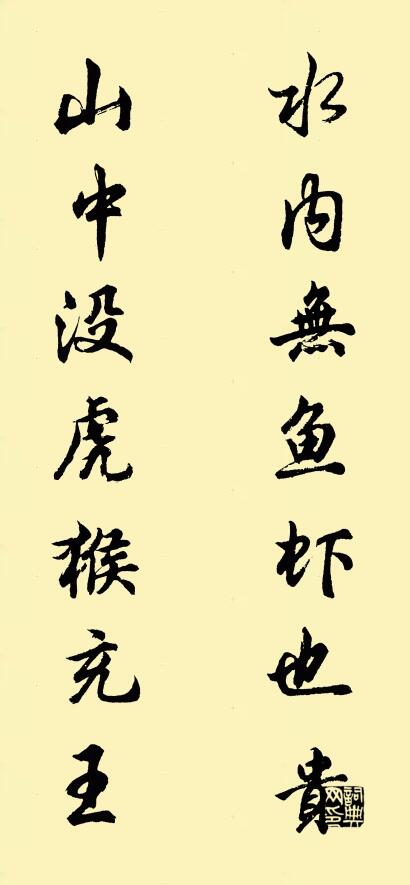 水内無鱼虾也貴
山中没虎猴充王
詞典网印